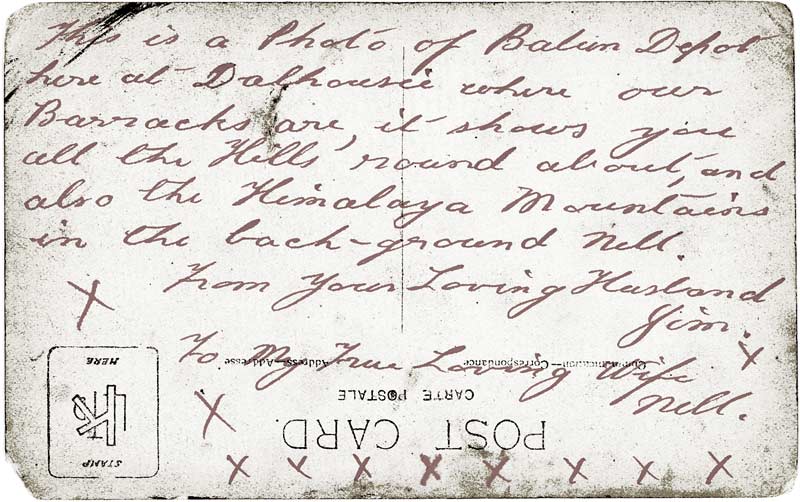 This is a Photo of Balun Depot
here at Dalhousie where our
Barracks are, it shows you
all the Hills 'round about, and
also the Himalaya Mountains
in the back-ground Nell.
From Your Loving Husband
Jim.
X
To My True Loving Wife
Nell.
X
X
X X X X X X X X
POST CARD.
CARTE POSTALE
Communication—Correspondance
Address—Addresse
STAMP
HERE